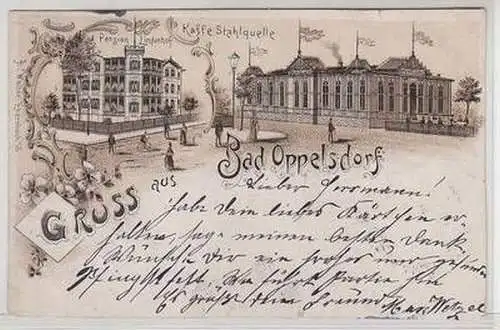 Pension Lindenhof
Kaffe Stahlquelle
Bad Oppelsdorf
GRUSS aus
Lieber Herrmann!
habe Dein liebes Kärtchen er
halten, sage meinen besten Dank
Wünsche Dir ein frohes
Pfingstfest.
Es grüßt Dein Freund Max Wetzel